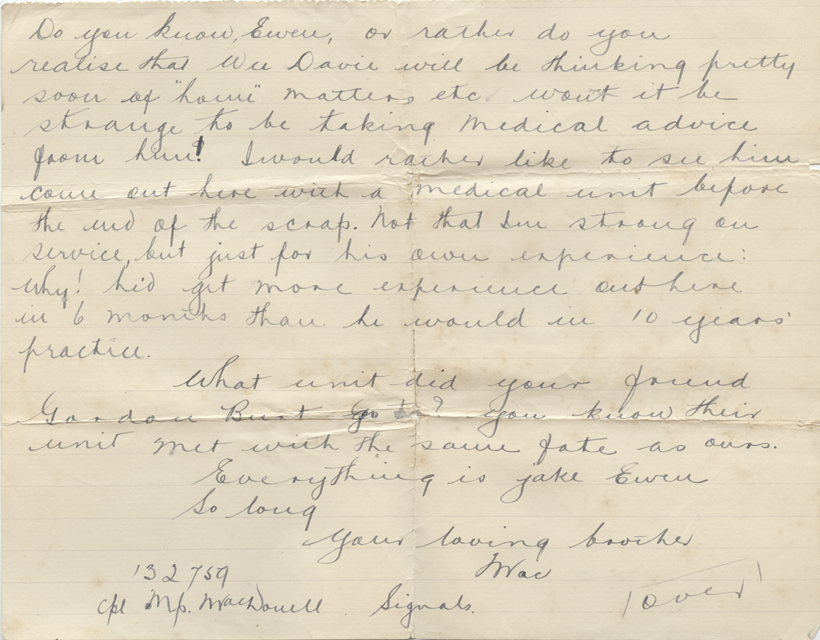 Do you know, Ewen, or rather do you
realise that Wee Davie will be thinking pretty
soon of "home" matters etc wont it be
strange to be taking medical advice
from him! I would rather like to see him
come out here with a medical unit before
the end of the scrap. Not that I'm strong on
service, but just for his own experience:
Why! he'd get more experience out here
in 6 months than he would in 10 years'
practice.
What unit did your friend
Gordon Burt go to? you know their
unit met with the same fate as ours.
Everything is jake Ewen
So long
Your loving brother
Mac
132759
Cpl M.P. MacDonell Signals.
over